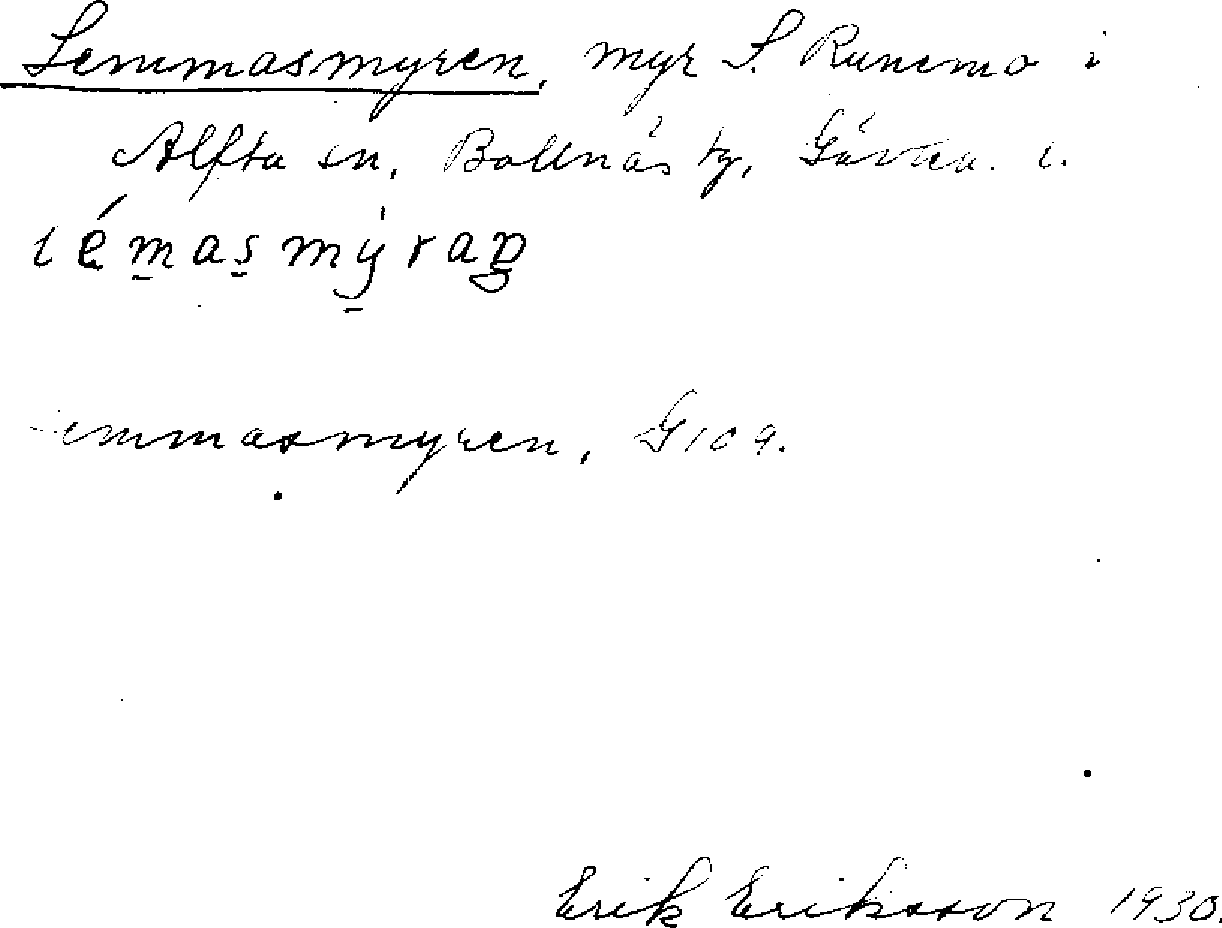 Lemmasmyren, myr S. Runemo i
Alfta sn, Bollnäs tg, Gävleb. l.
lémasmýraṇ
Lemmasmyren, G 109.
Erik Eriksson 1930.